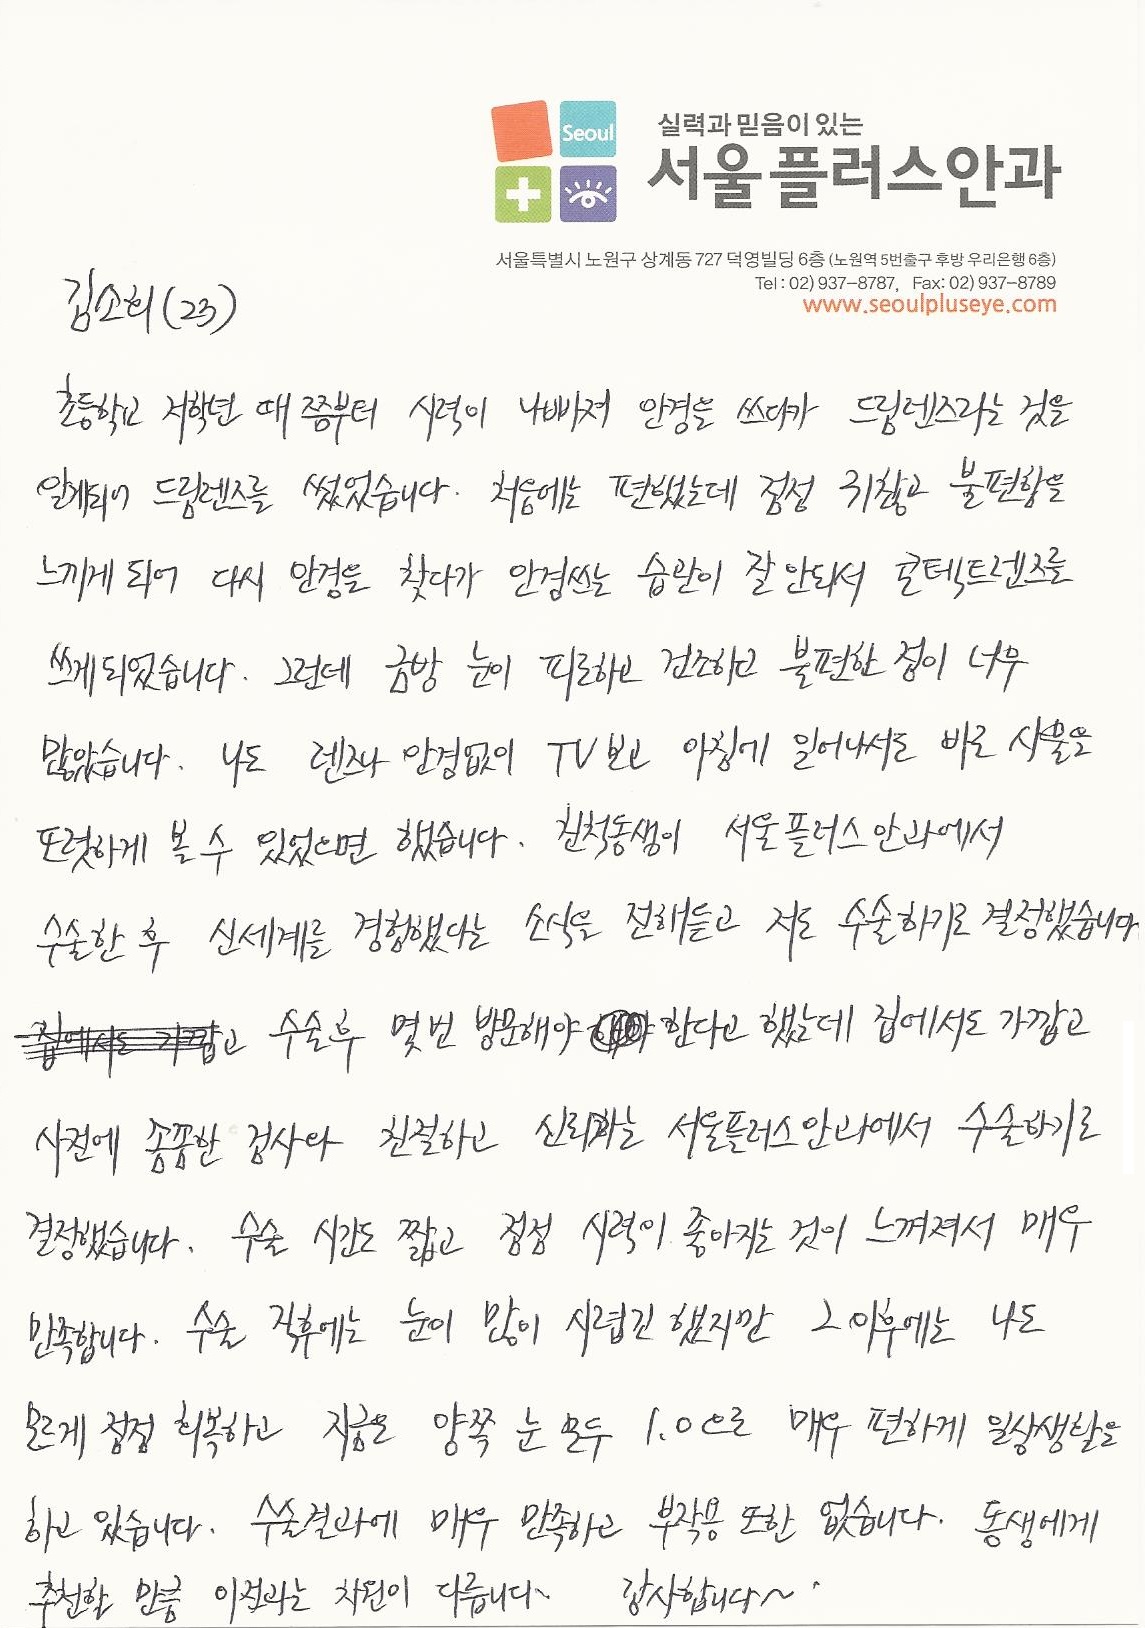 Seoul
실력과 믿음이 있는
서울플러스안과
서울특별시 노원구 상계동 727 덕영빌딩 6층 (노원역 5번출구 후방 우리은행 6층)
Tel : 02) 937-8787, Fax: 02) 937-8789
www.seoulpluseye.com
김소희 (23)
초등학교 저학년 때 쯤부터 시력이 나빠져 안경을 쓰다가 드림렌즈라는 것을
알게되어 드림렌즈를 썼었습니다. 처음에는 편했는데 점점 귀찮고 불편함을
느끼게 되어 다시 안경을 찾다가 안경쓰는 습관이 잘 안되서 콘택트렌즈를
쓰게되었습니다. 그런데 금방 눈이 피로하고 건조하고 불편한 점이 너무
많았습니다. 나도 렌즈나 안경없이 TV 보고 아침에 일어나서도 바로 사물을
또렷하게 볼 수 있었으면 했습니다. 친척동생이 서울플러스안과에서
수술한 후 신세계를 경험했다는 소식을 전해듣고 저도 수술하기로 결정했습니다.
집에서도 가깝고 수술후 몇 번 방문해야 한다고 했는데 집에서도 가깝고
사전에 꼼꼼한 검사와 친절하고 신뢰가는 서울플러스안과에서 수술하기로
결정했습니다. 수술 시간도 짧고 점점 시력이 좋아지는 것이 느껴져서 매우
만족합니다. 수술 직후에는 눈이 많이 시렵긴 했지만 그 이후에는 나도
모르게 점점 회복하고 지금은 양쪽 눈 모두 1.0으로 매우 편하게 일상생활을
하고 있습니다. 수술결과에 매우 만족하고 부작용 또한 없습니다. 동생에게
추천할 만큼 이전과는 차원이 다릅니다. 감사합니다~